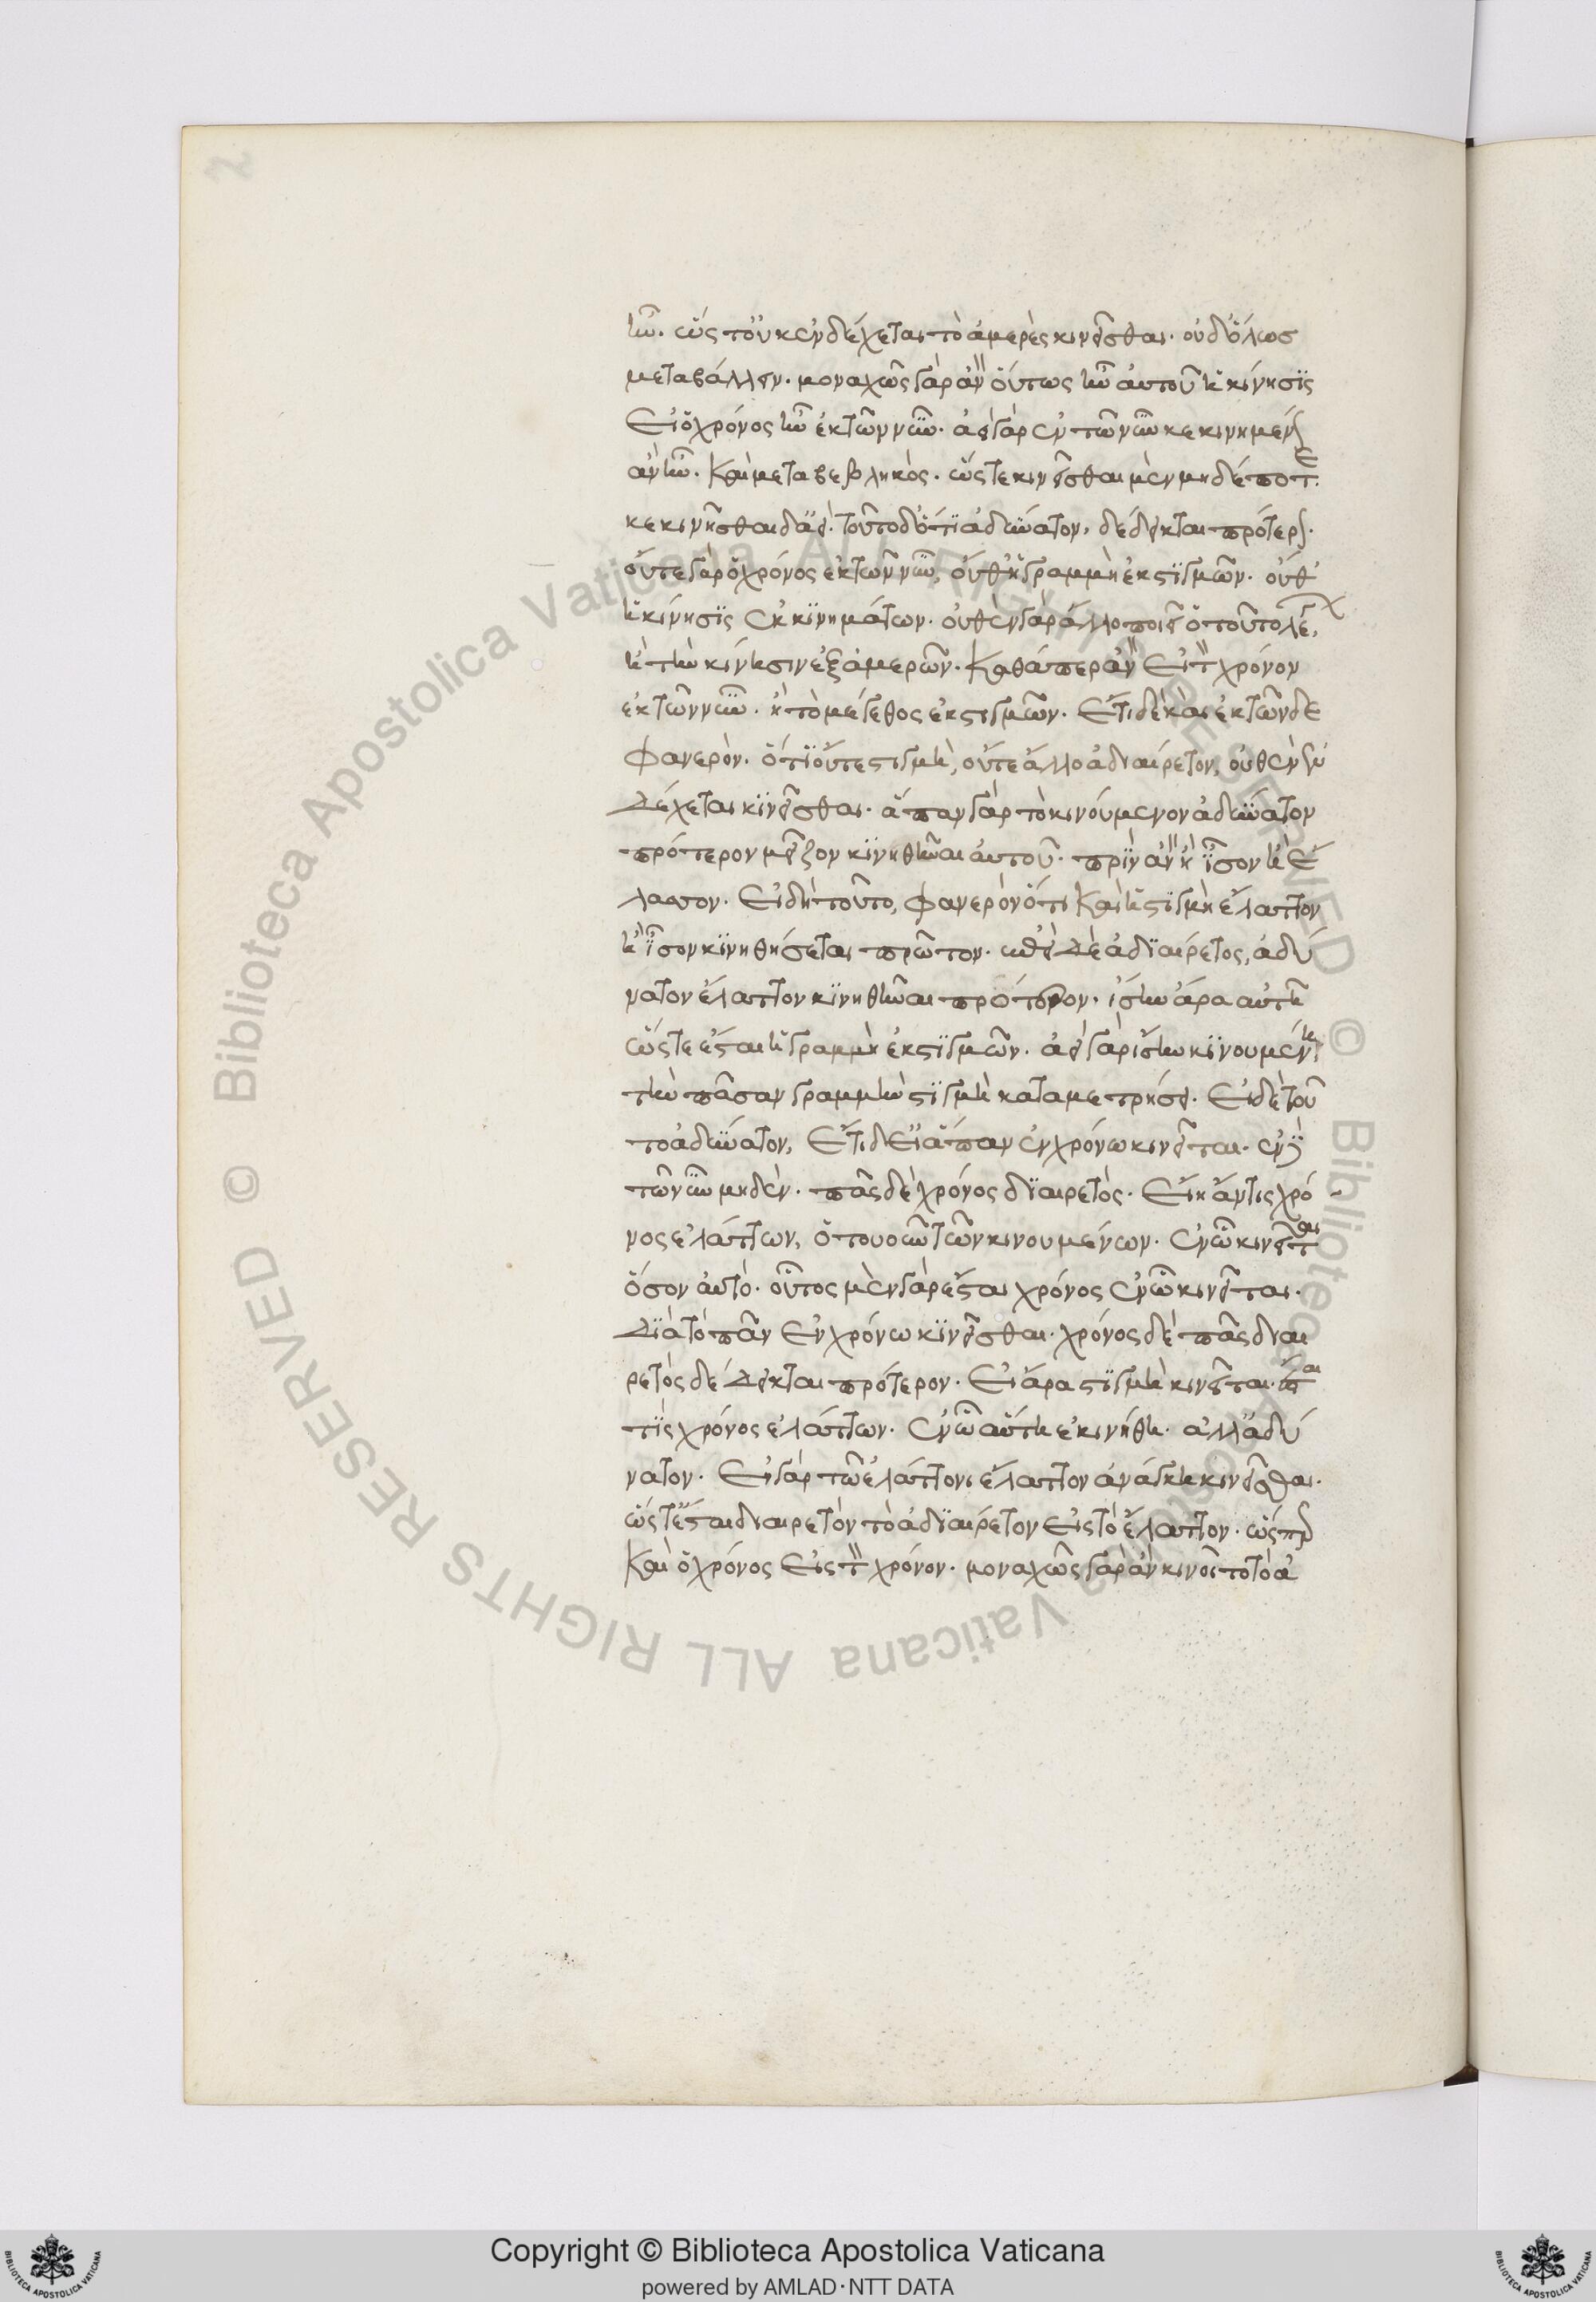 ἦν. ὥστ' οὐκ ἐνδέχεται τὸ ἀμερὲς κινεῖσθαι. οὐδ' ὅλως
μεταβάλλειν. μοναχῶς γὰρ ἂν οὕτως ἦν αὐτοῦ ἡ κίνησις
Εἰ ὁ χρόνος ἦν ἐκ τῶν νῦν. ἀεὶ γὰρ ἐν τῶ νῦν κεκινημένον
ἂν ἦν. Καὶ μεταβεβληκός. ὥστε κινεῖσθαι μὲν μηδέποτε.
κεκινῆσθαι δ' ἀεί. τοῦτο δ' ὅτι ἀδύνατον, δέδεικται πρότερον.
οὔτε γὰρ ὁ χρόνος ἐκ τῶν νῦν, οὔθ' ἡ γραμμὴ ἐκ στιγμῶν. οὔθ'
ἡ κίνησις ἐκ κινημάτων. οὐθὲν γὰρ ἄλλο ποιεῖ ὁ τοῦτο λέγων,
ἢ τὴν κίνησιν ἐξ ἀμερῶν. Καθάπερ ἂν εἰ τὸν χρόνον
ἐκ τῶν νῦν. ἢ τὸ μέγεθος ἐκ στιγμῶν. Ἔτι δὲ καὶ ἐκ τῶνδε
Φανερὸν. ὅτι οὔτε στιγμὴ, οὔτε ἄλλο ἀδιαίρετον, οὐθὲν ἐν
δέχεται κινεῖσθαι. ἅπαν γὰρ τὸ κινούμενον ἀδύνατον
πρότερον μεῖζον κινηθῆναι αὐτοῦ. πρὶν ἂν ἢ ἴσον ἢ ἔ
λαττον. Εἰ δὴ τοῦτο, φανερὸν ὅτι Καὶ ἡ στιγμὴ ἔλαττον
ἢ ἴσον κινηθήσεται πρῶτον. ἐπεὶ δὲ ἀδιαίρετος, ἀδύ
νατον ἔλαττον κινηθῆναι πρότερον. ἴσην ἄρα αὐτῆ
ὥστε ἔσται ἡ γραμμὴ ἐκ στιγμῶν. ἀεὶ γὰρ ἴσην κινουμένη
τὴν πᾶσαν γραμμὴν στιγμὴ καταμετρήσει. Εἰ δὲ τοῦ
το ἀδύνατον, Ἔτι δ' εἰ ἅπαν ἐν χρόνω κινεῖται. ἐν δὲ
τῶ νῦν μηδέν. πᾶς δὲ χρόνος διαιρετός. Εἴη ἄν τις χρό
νος ἐλάττων, ὁτουοῦν τῶν κινουμένων. ἐν ὧ κινεῖται
ὅσον αὐτό. οὗτος μὲν γὰρ ἔσται χρόνος ἐν ὧ κινεῖται.
Διὰ τὸ πᾶν ἐν χρόνω κινεῖσθαι. χρόνος δὲ πᾶς διαι
ρετὸς δέδεικται πρότερον. Εἰ ἄρα στιγμὴ κινεῖται. ἔσται
τις χρόνος ἐλάττων. ἐν ὧ αὕτη ἐκινήθη. ἀλλ' ἀδύ
νατον. Εἰ γὰρ τῶ ἐλάττονι ἔλαττον ἀνάγκη κινεῖσθαι.
ὥστ' ἔσται διαιρετὸν τὸ ἀδιαίρετον εἰς τὸ ἔλαττον. ὥσπερ
Καὶ ὁ χρόνος εἰς τὸν χρόνον. μοναχῶς γὰρ ἂν κινοῖτο τὸ ἀ
Copyright © Biblioteca Apostolica Vaticana
powered by AMLAD·NTT DATA